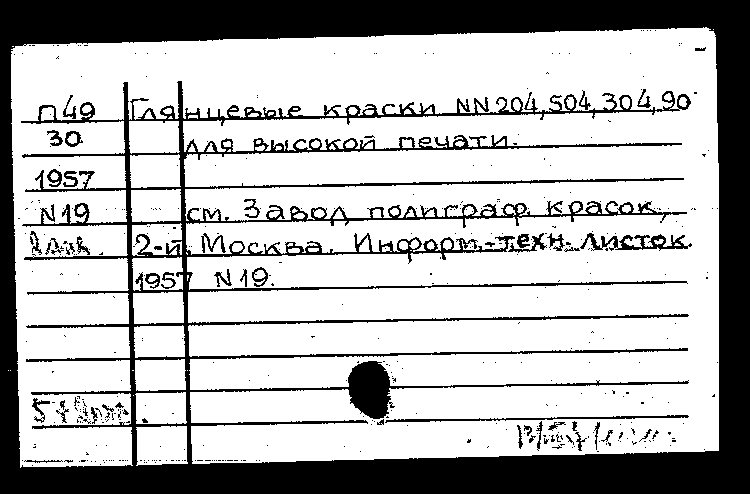 П49 Глянцевые краски NN 204, 504, 304, 90
30 для высокой печати.
1957
N19 см. Завод полиграф. красок,
2-й, Москва. Информ.-техн. листок.
1957 N 19.